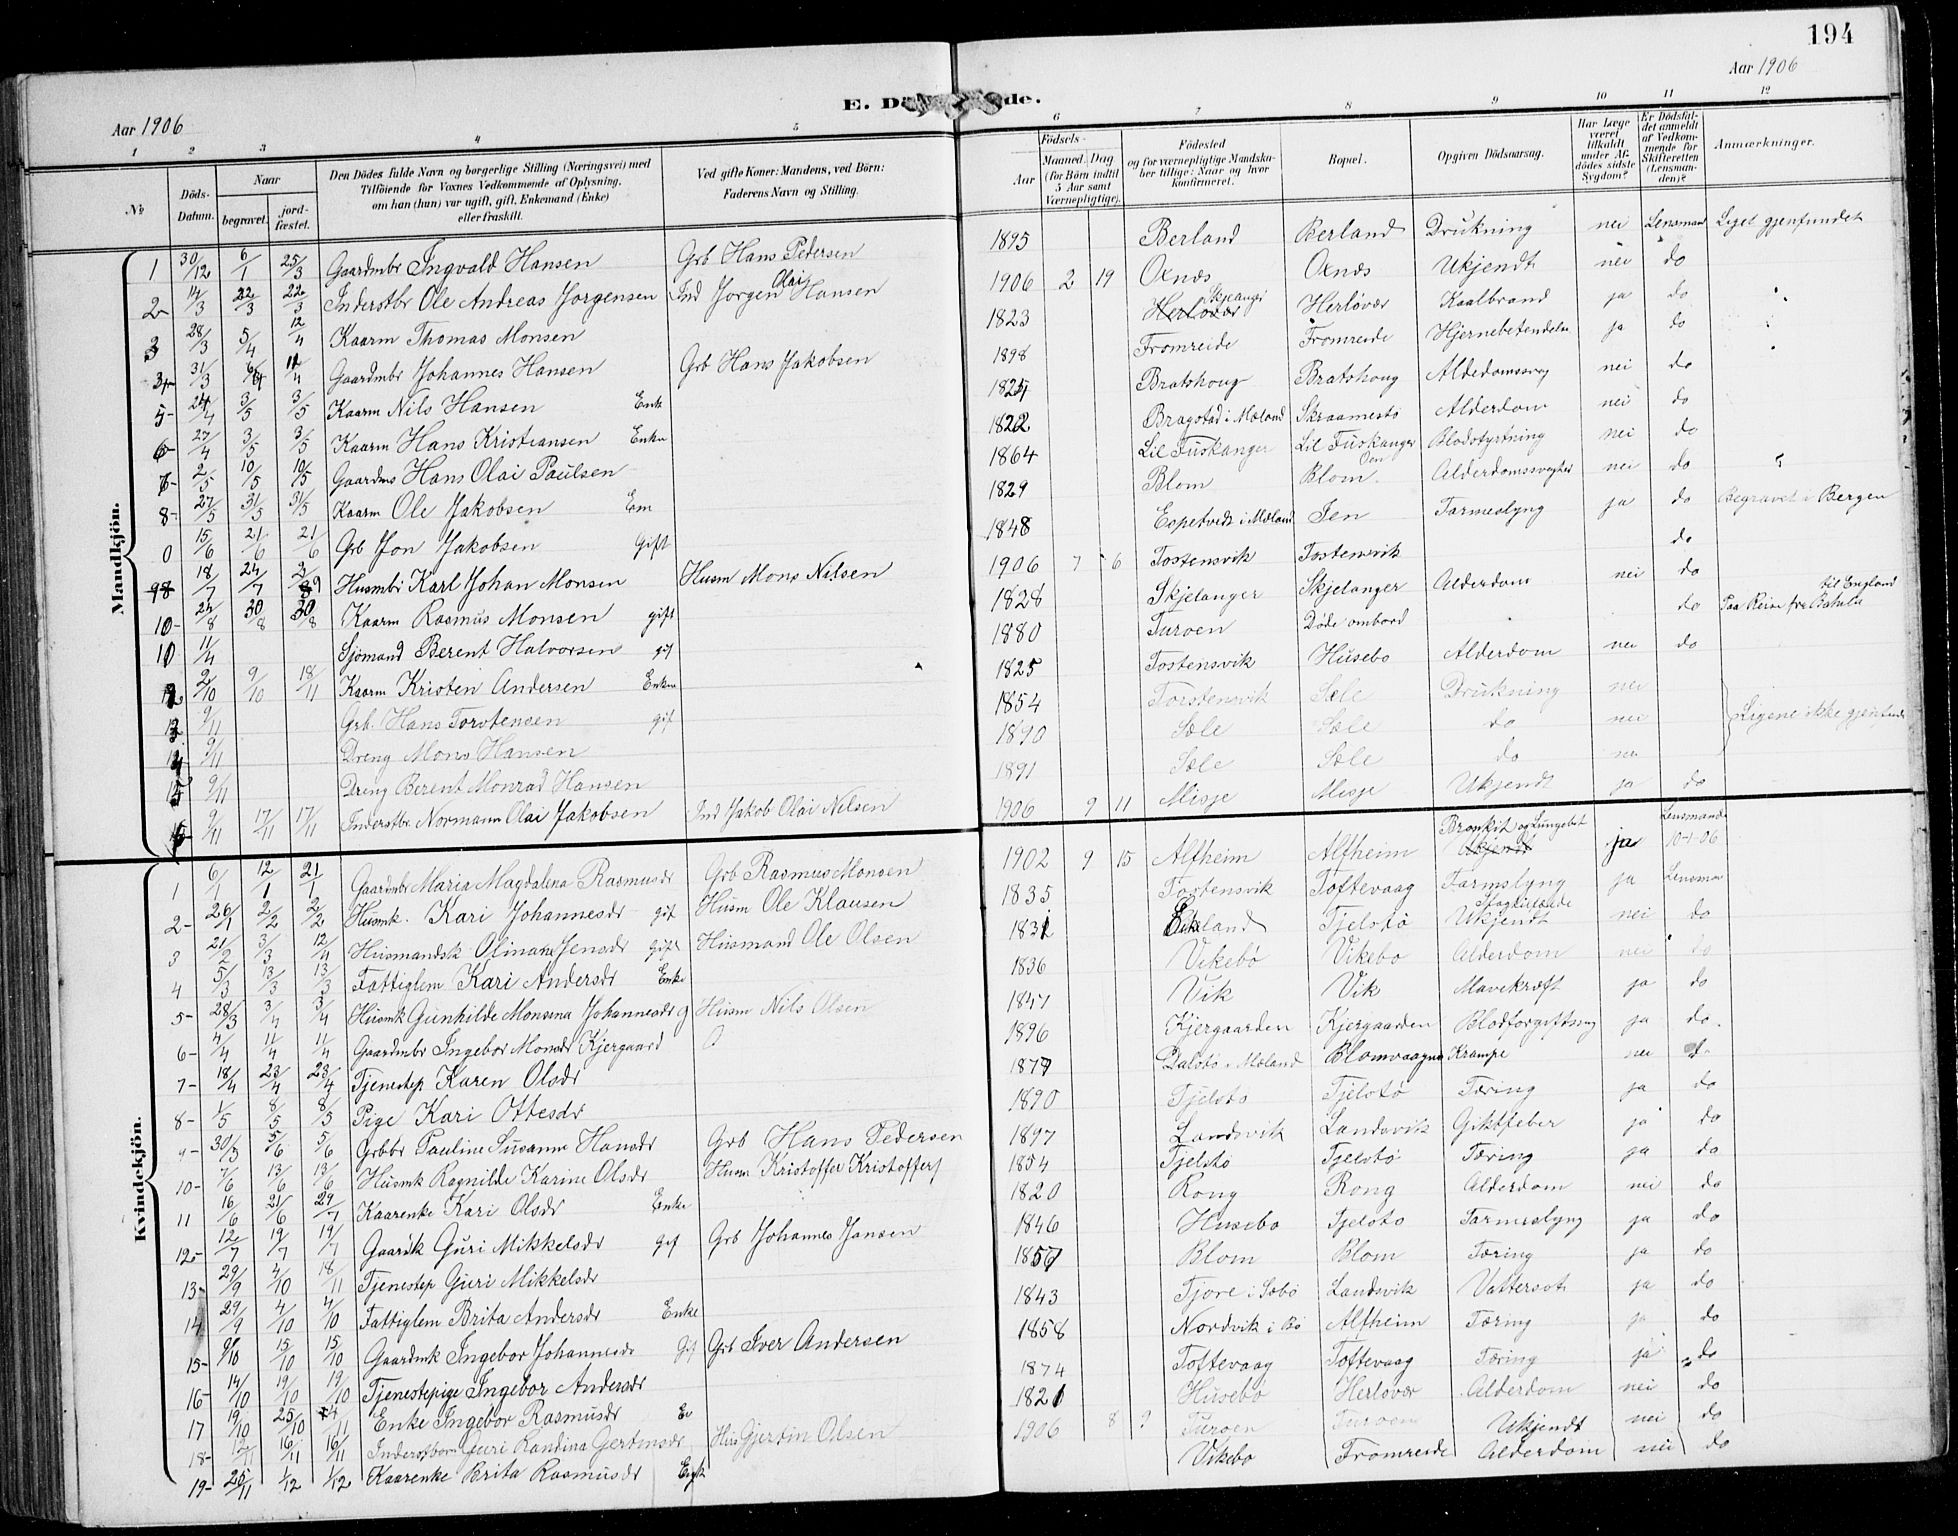 194
Aar 1906
Aar 1906
E. Dö de.
1 2 3 4 5 6 7 8 9 10 11 12
№
Döds-Datum.
Naar
begravet.
jord-fæstet.
Den Dödes fulde Navn og borgerlige Stilling (Næringsvei) med Tilföiende for Voxnes Vedkommende af Oplysning, om han (hun) var ugift, gift, Enkemand (Enke) eller fraskilt.
Ved gifte Koner: Mandens, ved Börn: Faderens Navn og Stilling.
Födsels-
Aar
Maaned. Dag (for Börn indtil 5 Aar samt Værnepligtige).
Födested og for værnepligtige Mandskaber tillige: Naar og hvor Konfirmeret.
Bopæl.
Opgiven Dödsaarsag.
Har Læge været tilkaldt under Afdödes sidste Sygdom?
Er Dödsfaldet anmeldt af Vedkommende for Skifteretten (Lensmanden)?
Anmærkninger.
Mandkjön.
1 30/12 6/1 25/3 Gaardmbr Ingvald Hansen Grb Hans Pedersen 1895 Berland Berland Drukning nei Lensmand Liget gjenfundet
2 14/3 22/3 22/3 Inderstbr Ole Andreas Jorgensen Ind Jorgen Olai Hansen 1906 2 19 Oxnæs Oxnæs Ukjendt nei do
3 28/3 5/4 12/4 Kaarm Thomas Monsen 1823 Herlovær Skjelanger Herlövær Kaalbrand ja do
4 31/3 6/4 4 Gaardmbr Johannes Hansen Grb Hans Jakobsen 1898 Fromreide Fromreide Hjernebetendelse ja do
5 24/4 3/5 3/5 Kaarm Nils Hansen Enk 1824 Bratshoug Bratshoug Alderdomssvag nei do
6 27/4 3/5 3/5 Kaarm Hans Kristiansen Enkm 1822 Bragstad i Mæland Skraamestö Alderdom nei do
7 2/5 10/5 10/5 Gaardms Hans Olai Paulsen 1864 Lil Fuskanger Lil Fuskanger Blodstyrtning nei do
8 27/5 31/5 31/5 Kaarm Ole Jakobsen Em 1829 Blom Blom Alderdomssvaghed nei do
0 15/6 21/6 21/6 Grb Jon Jakobsen Gift 1848 Espetvedt i Mæland Sen Tarmeslyng ja do Begravet i Bergen
9 18/7 24/7 Husmbr Karl Johan Monsen Husm Mons Nilsen 1906 7 6 Tostensvik Tostensvik do
10 24/8 30/8 30/8 Kaarm Rasmus Monsen gift 1828 Skjelanger Skjelanger Alderdom nei do
11 11/4 Sjömand Berent Halvorsen gif 1880 Turoen Döde ombord do Paa Reise fra Batula til England
12 2/10 9/10 18/11 Kaarm Kristen Andersen Enkm 1825 Tostensvik Husebo Alderdom nei do
13 9/11 Grb. Hans Torstensen gif 1854 Torstensvik Sæle Drukning nei
14 9/11 Dreng Mons Hansen 1890 Sæle Sæle do nei Ligene ikke gjenfundne
15 9/11 Dreng Berent Monrad Hansen 1891 Sæle Sæle do nei
16 9/11 17/11 17/11 Inderstbr Normann Olai Jakobsen Ind Jakob Olai Nilsen 1906 9 11 Misje Misje Ukjendt ja do
Kvindekjön.
1 6/1 12/1 21/1 Gaardmbr Maria Magdalena Rasmusdr Grb Rasmus Monsen 1902 9 15 Alfheim Alfheim Bronkit og Lungebet Ukjendt ja Lensmand 10-1-06
2 26/1 2/2 2/2 Husmk. Kari Johannesdr gif Husm Ole Klausen 1835 Tostensvik Toftevaag Tarmslyng ja Lensman
3 21/2 3/3 12/4 Husmandsk Olina Jensdr Gift Husmand Ole Olsen 1831 Ekeland Tjelstö Ukjendt nei do
4 5/3 13/3 13/3 Fattiglem Kari Andersdr Enke 1836 Vikebö Vikebo Alderdom nei do
5 28/3 3/4 3/4 Husmk Gunhilde Monsena Johannesdr g Husm Nils Olsen 1847 Vik Vik Mavekræft ja do
6 4/4 11/4 11/4 Gaardmbr Ingebor Monsdr Kjergaard 1896 Kjergaarden Kjergaarden Blodforgiftning ja do
7 18/4 23/4 23/4 Tjenestep Karen Olsdr 1877 Dalsto i Mæland Blomvaagnes Krampe nei
8 1/5 8/5 8/5 Pige Kari Ottesdr 1890 Tjelsto Tjelstö Tæring ja do
9 30/3 5/6 5/6 Grbbr Pauline Susanne Hansdr Grb Hans Pedersen 1897 Landsvik Landsvik Giktfeber ja do
10 7/6 13/6 13/6 Husmk Ragnilde Karine Olsdr Husm Kristoffer Kristoffers 1854 Tjelstö Tjelstö Tæring ja do
11 16/6 21/6 29/7 Kaarenke Kari Olsdr Enke 1820 Rong Rong Alderdom nei do
12 12/7 19/7 19/7 Gaardk Guri Mikkelsdr Gif Grb Johannes Jansen 1846 Husebo Tjelsto Tarmeslyng ja do
13 29/9 4/10 18/11 Tjenestep Guri Mikkelsdr 1857 Blom Blom Tæring ja do
14 29/9 4/10 4/10 Fattiglem Brita Andersdr Enke 1843 Tjore i Sæbö Landsvik Vattersot ja do
15 9/10 15/10 15/10 Gaardmk Ingebor Johannesdr Gif Grb Iver Andersen 1858 Nordvik i Bö Alfheim Tæring ja do
16 14/10 19/10 19/10 Tjenestepige Ingebor Andersdr 1874 Toftevaag Toftevaag Tæring ja do
17 19/10 25/10 11 Enke Ingebor Rasmusdr En 1821 Husebo Herlovær Alderdom nei do
18 12/11 16/11 16/11 Inderstbarn Guri Randina Gertinsdr Hus Gjertin Olsen 1906 8 9 Turoen Turoen Ukjendt nei do
19 25/11 1/12 1/12 Kaarenke Brita Rasmusdr Enk Vikebo Fromreide Alderdom nei do